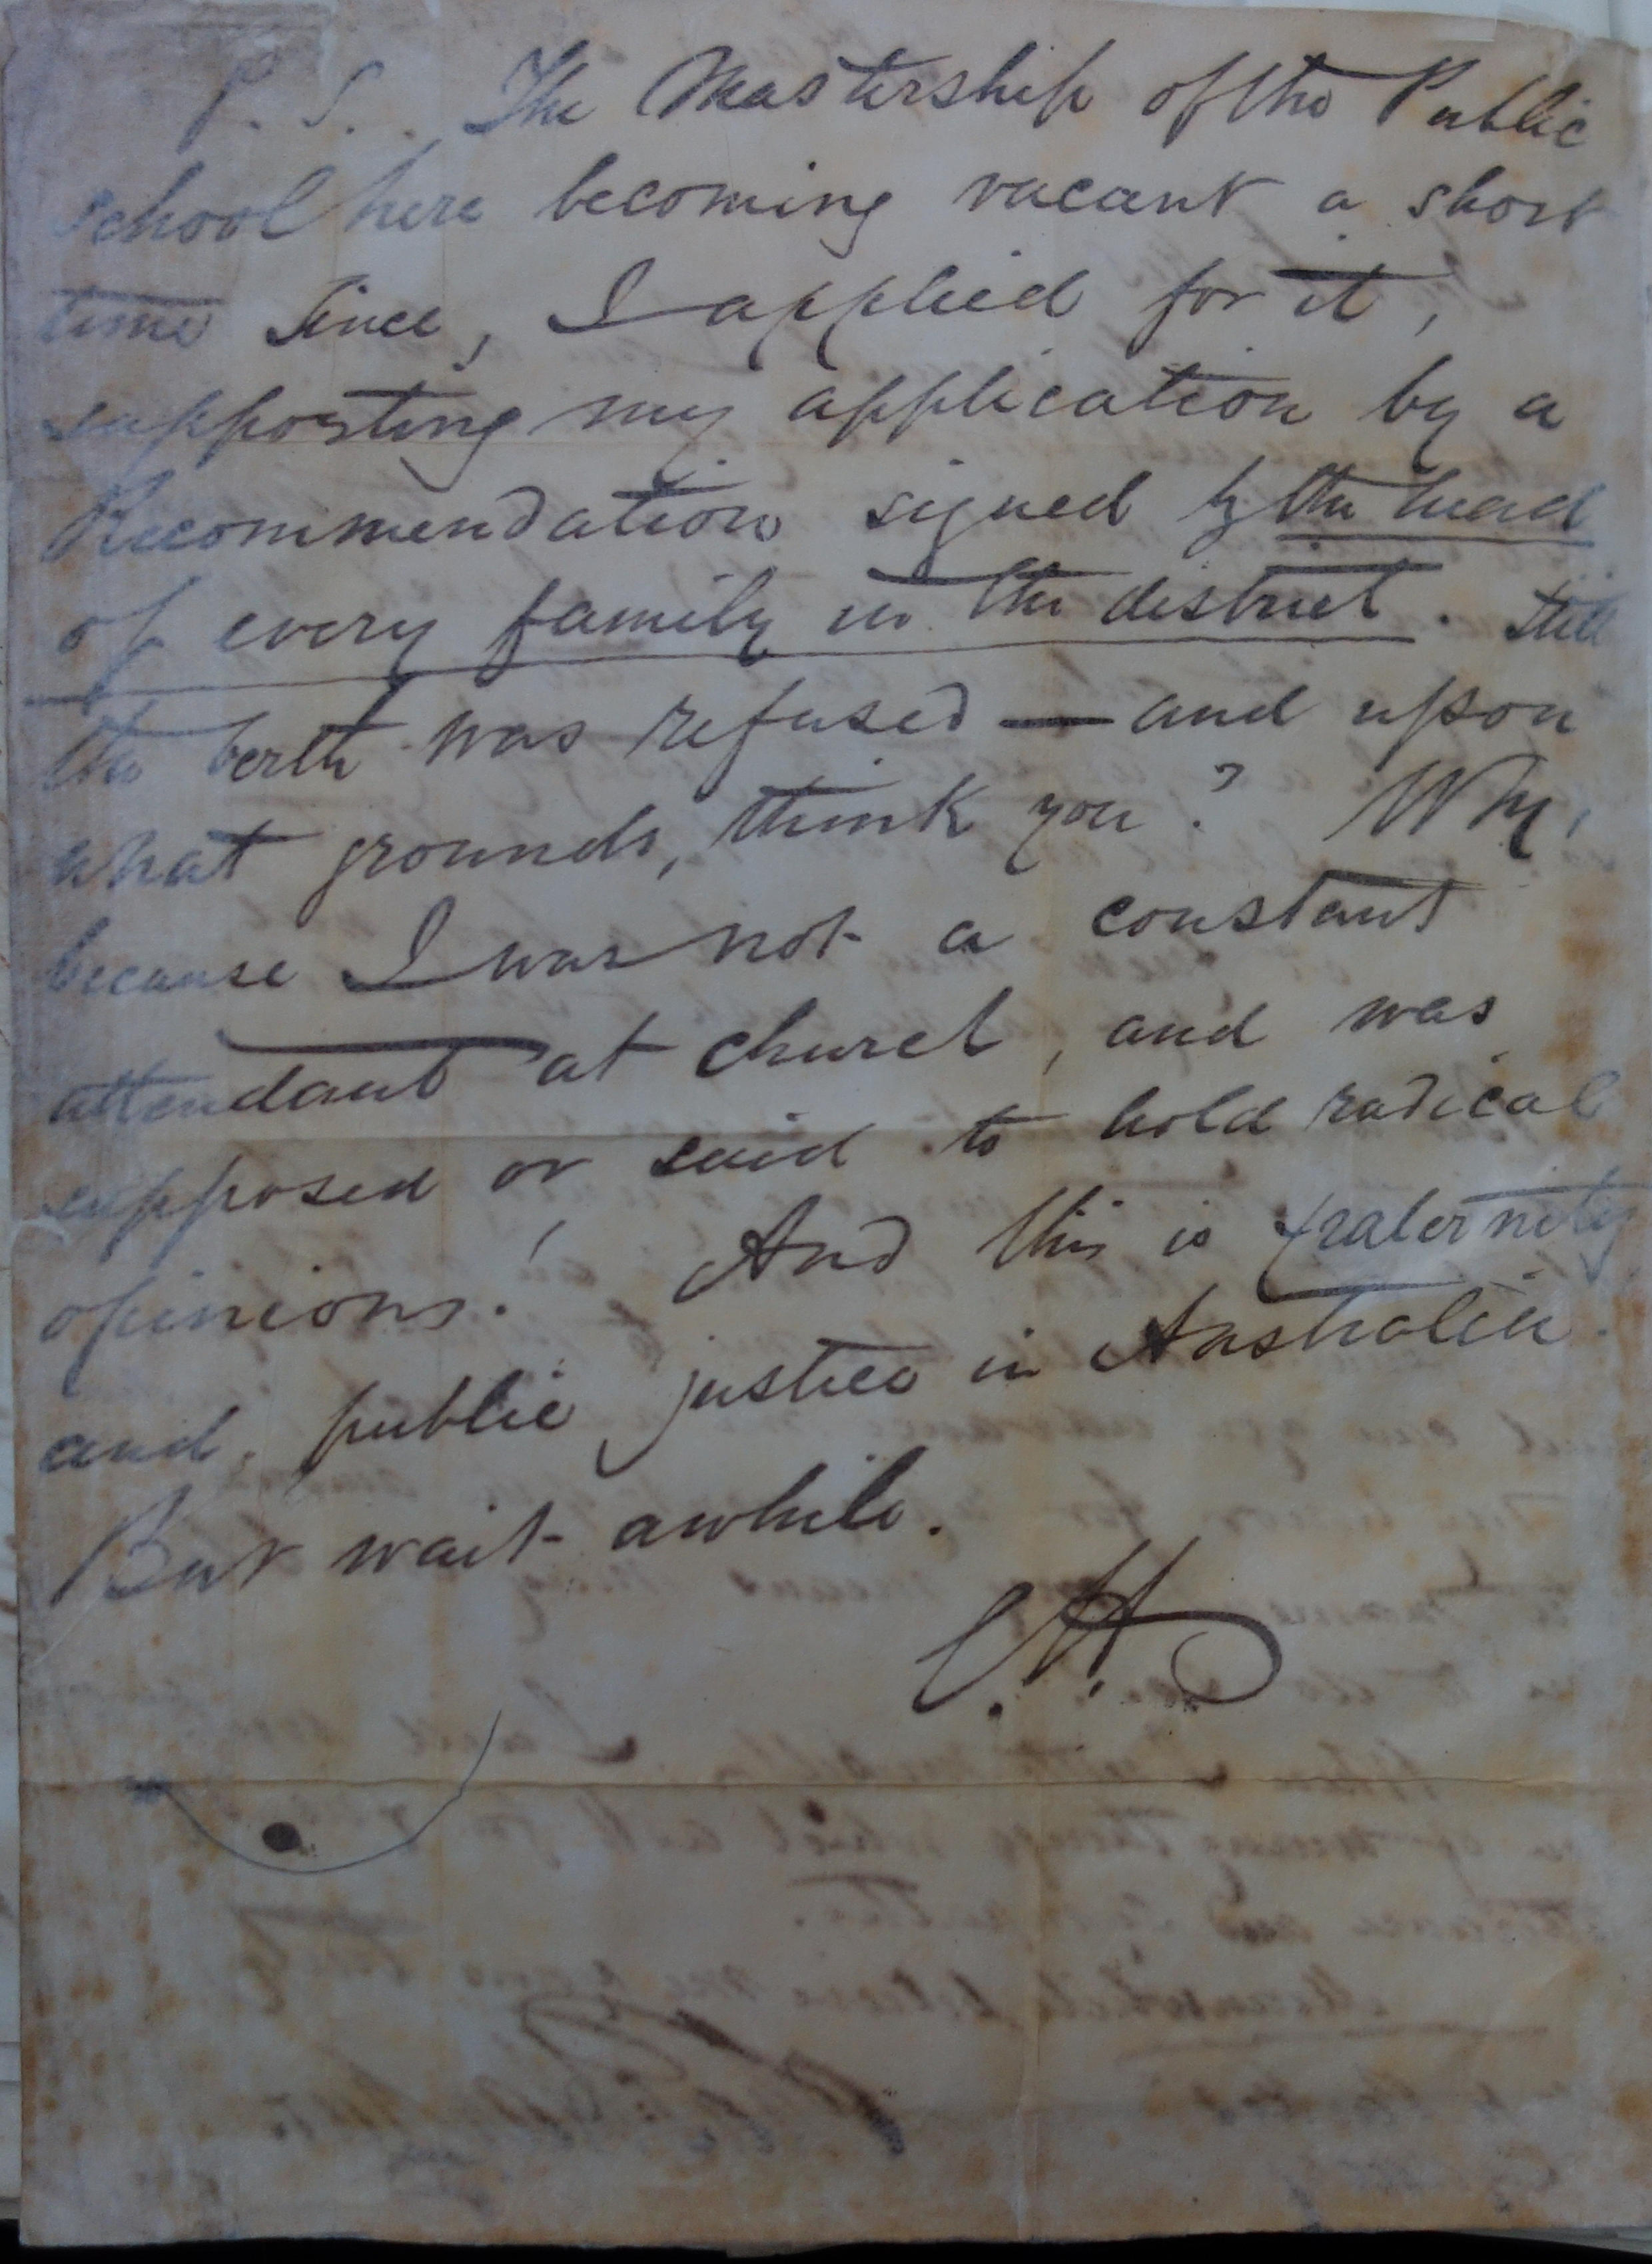 P. S. The Mastership of the Public
school here becoming vacant a short
time since, I applied for it,
supporting my application by a
Recommendation signed by the head
of every family in the district. Still
the berth was refused — and upon
what grounds, think you? Why,
because I was not a constant
attendant at church, and was
supposed or said to hold radical
opinions! And this is fraternity
and public justice in Australia.
But wait awhile.
C.H.